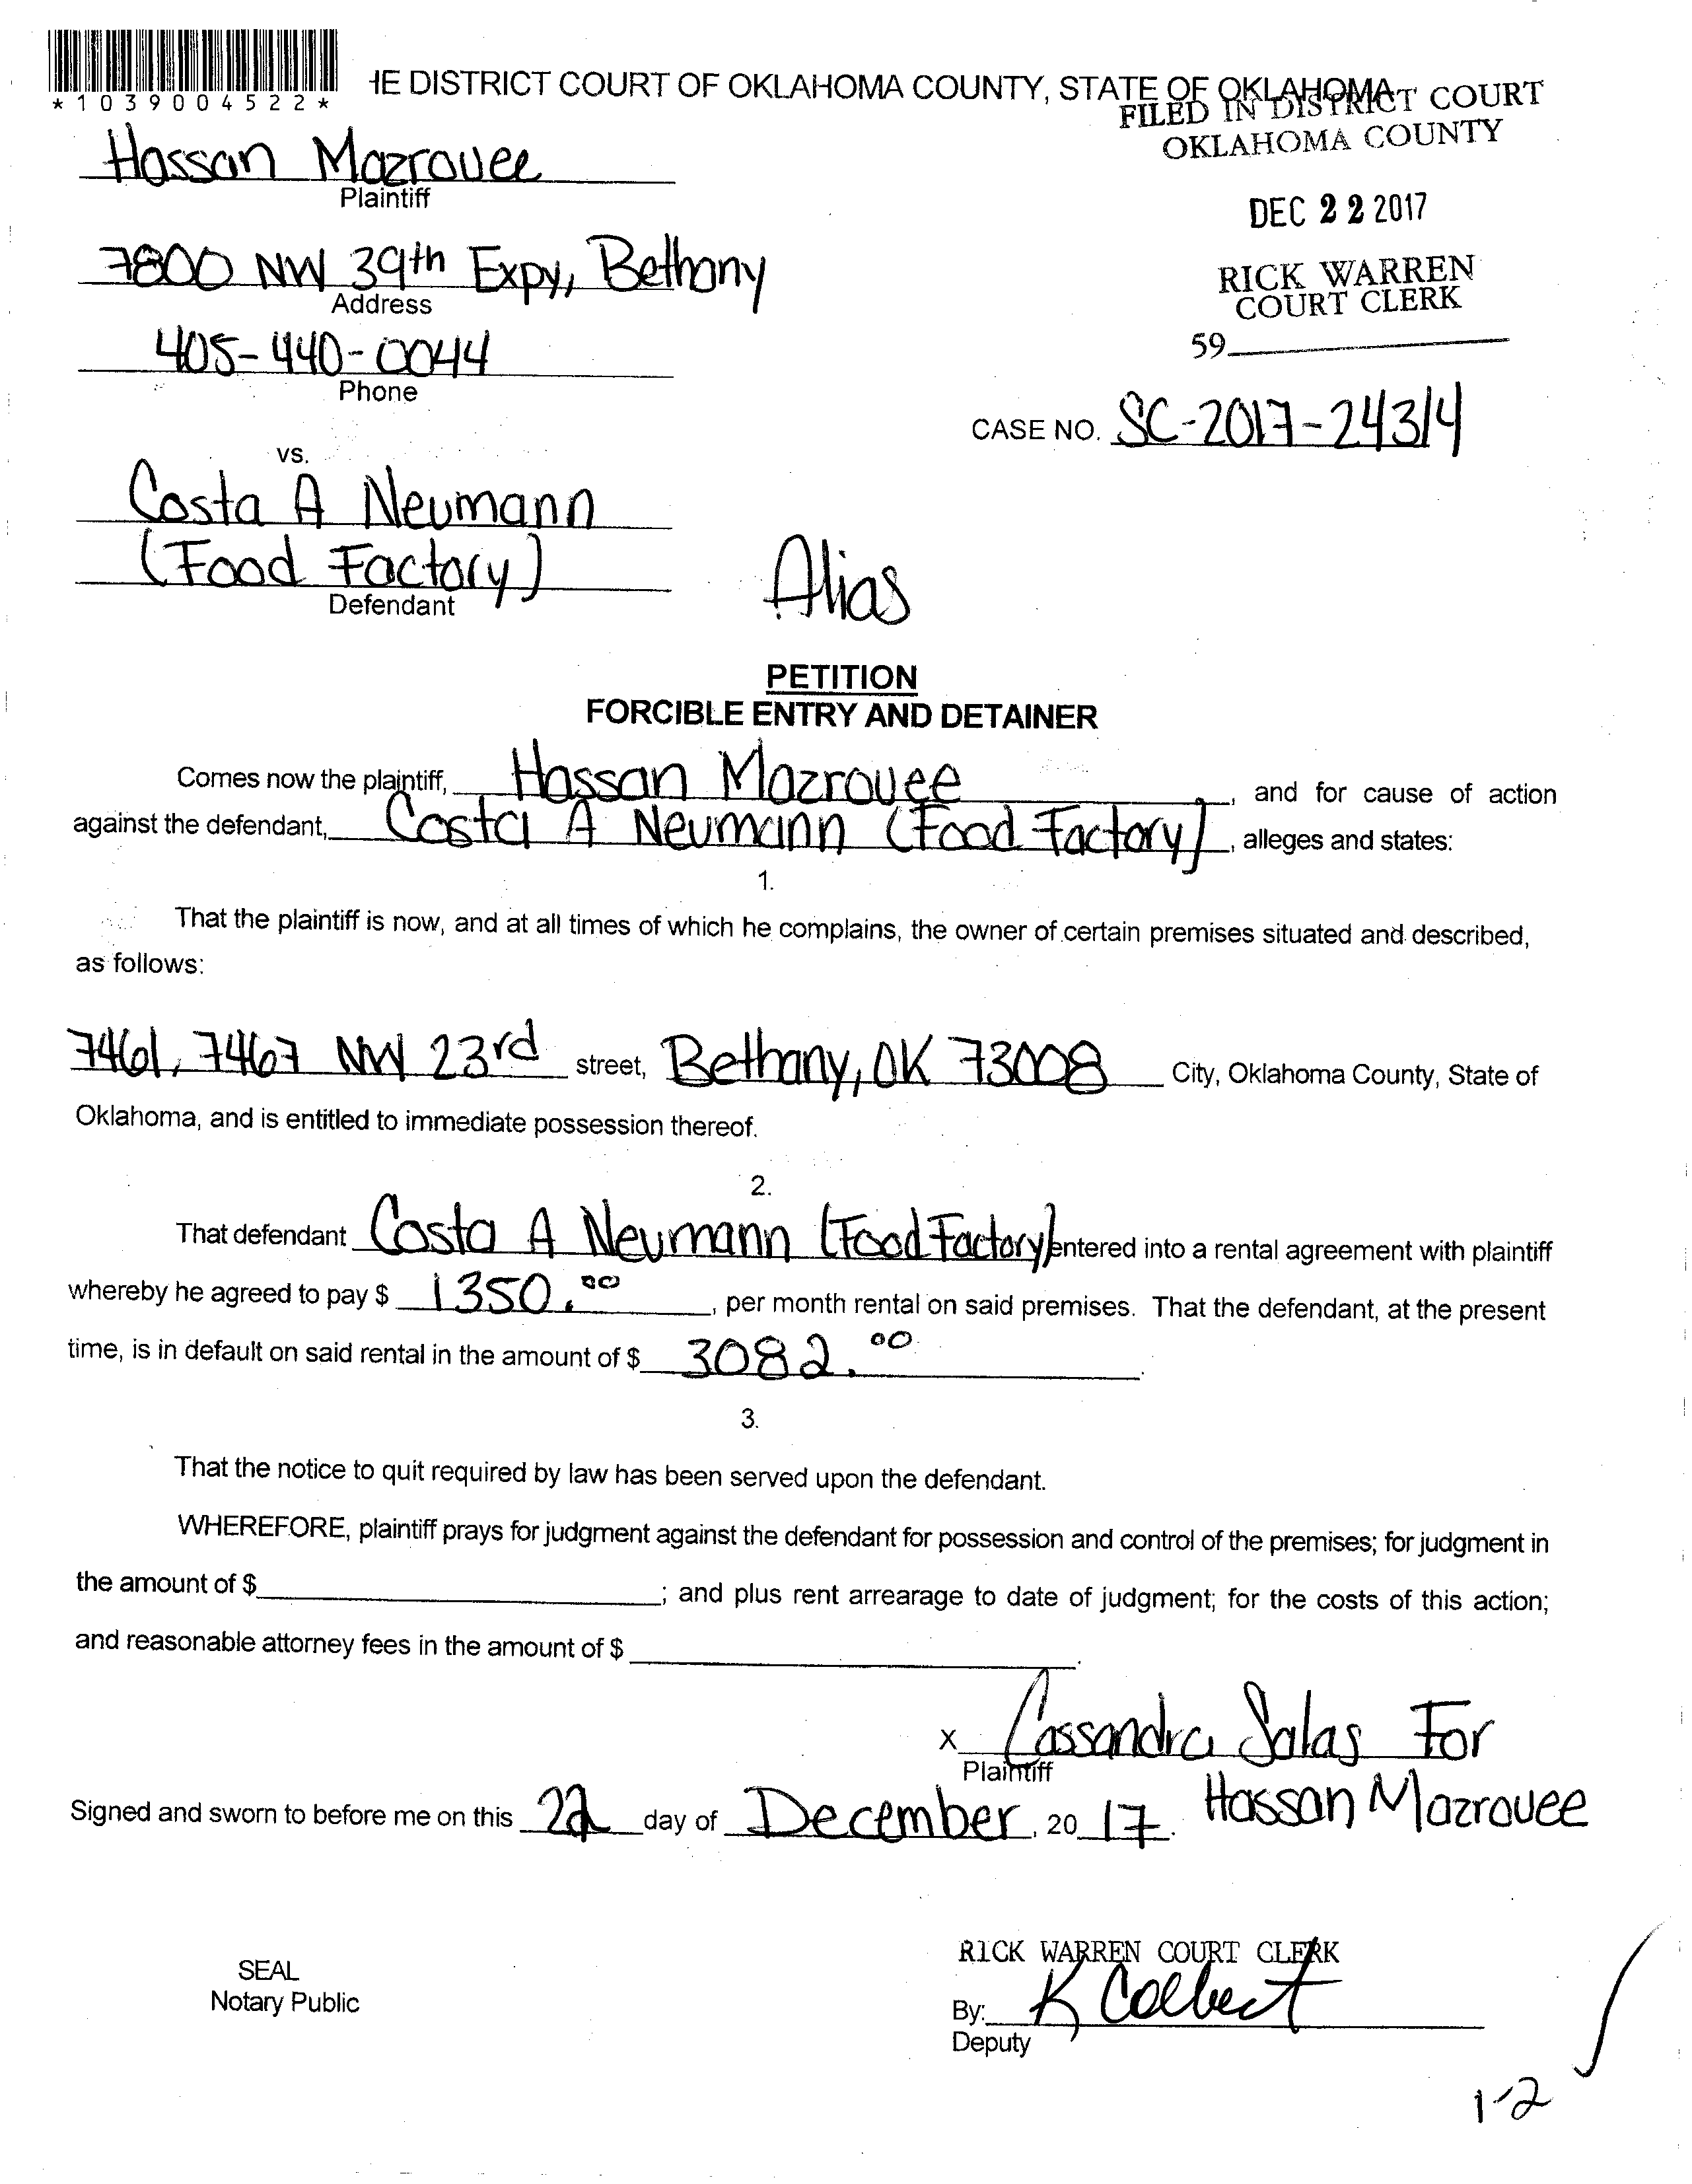 *1039004522*
HE DISTRICT COURT OF OKLAHOMA COUNTY, STATE OF OKLAHOMA
FILED IN DISTRICT COURT
OKLAHOMA COUNTY
Hassan Mazrouee
Plaintiff
DEC 22 2017
7800 NW 39th Expy, Bethany
Address
RICK WARREN
COURT CLERK
405-440-0044
Phone
59
CASE NO. SC-2017-24314
vs.
Costa A Neumann
(Food Factory)
Defendant
Alias
PETITION
FORCIBLE ENTRY AND DETAINER
Comes now the plaintiff, Hassan Mazrouee, and for cause of action
against the defendant, Costa A Neumann (Food Factory), alleges and states:
1.
That the plaintiff is now, and at all times of which he complains, the owner of certain premises situated and described,
as follows:
7461, 7467 NW 23rd street, Bethany, OK 73008 City, Oklahoma County, State of
Oklahoma, and is entitled to immediate possession thereof.
2.
That defendant Costa A Neumann (Food Factory) entered into a rental agreement with plaintiff
whereby he agreed to pay $ 1350.00, per month rental on said premises. That the defendant, at the present
time, is in default on said rental in the amount of $ 3082.00.
3.
That the notice to quit required by law has been served upon the defendant.
WHEREFORE, plaintiff prays for judgment against the defendant for possession and control of the premises; for judgment in
the amount of $ ; and plus rent arrearage to date of judgment; for the costs of this action;
and reasonable attorney fees in the amount of $ .
x Cassandra Salas For
Plaintiff
Hassan Mazrouee
Signed and sworn to before me on this 22 day of December, 2017.
RICK WARREN COURT CLERK
SEAL
Notary Public
By: K Colbert
Deputy
1-2